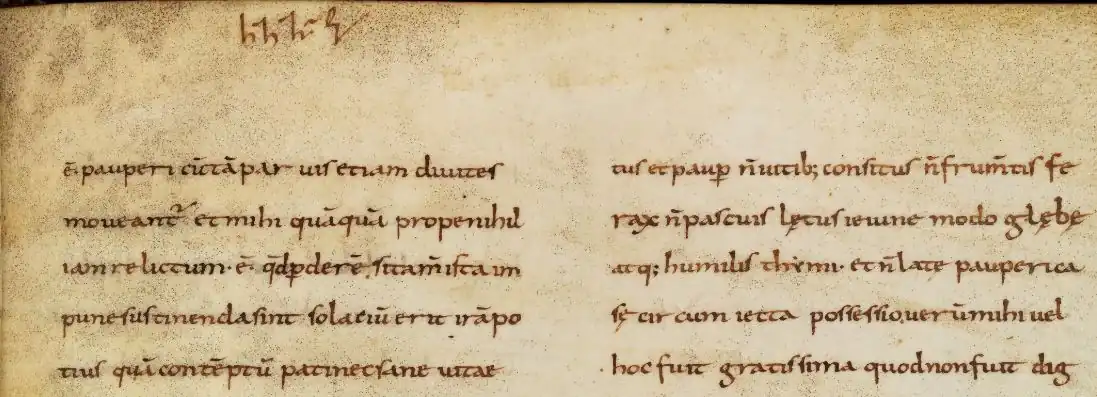 ē. pauperi cū tā paruis etiam diuites
moueant᷑ et mihi quāquā prope nihil
iam relictum·ē· qđ ꝑderē, si tam̄ ista im
pune sustinenda sint solaciū erit irā po
tius quā contēptū pati nec sane uitae
tus et paup̄ n̄ uitib; consitus n̄ frum̄tis fe
rax n̄ pascuis lętus ieiune modo glębę
atq; humilis thymi· et n̄ late pauperi ca
sę circum iecta possessio. uerū mihi uel
hoc fuit gratissima quod non fuit dig